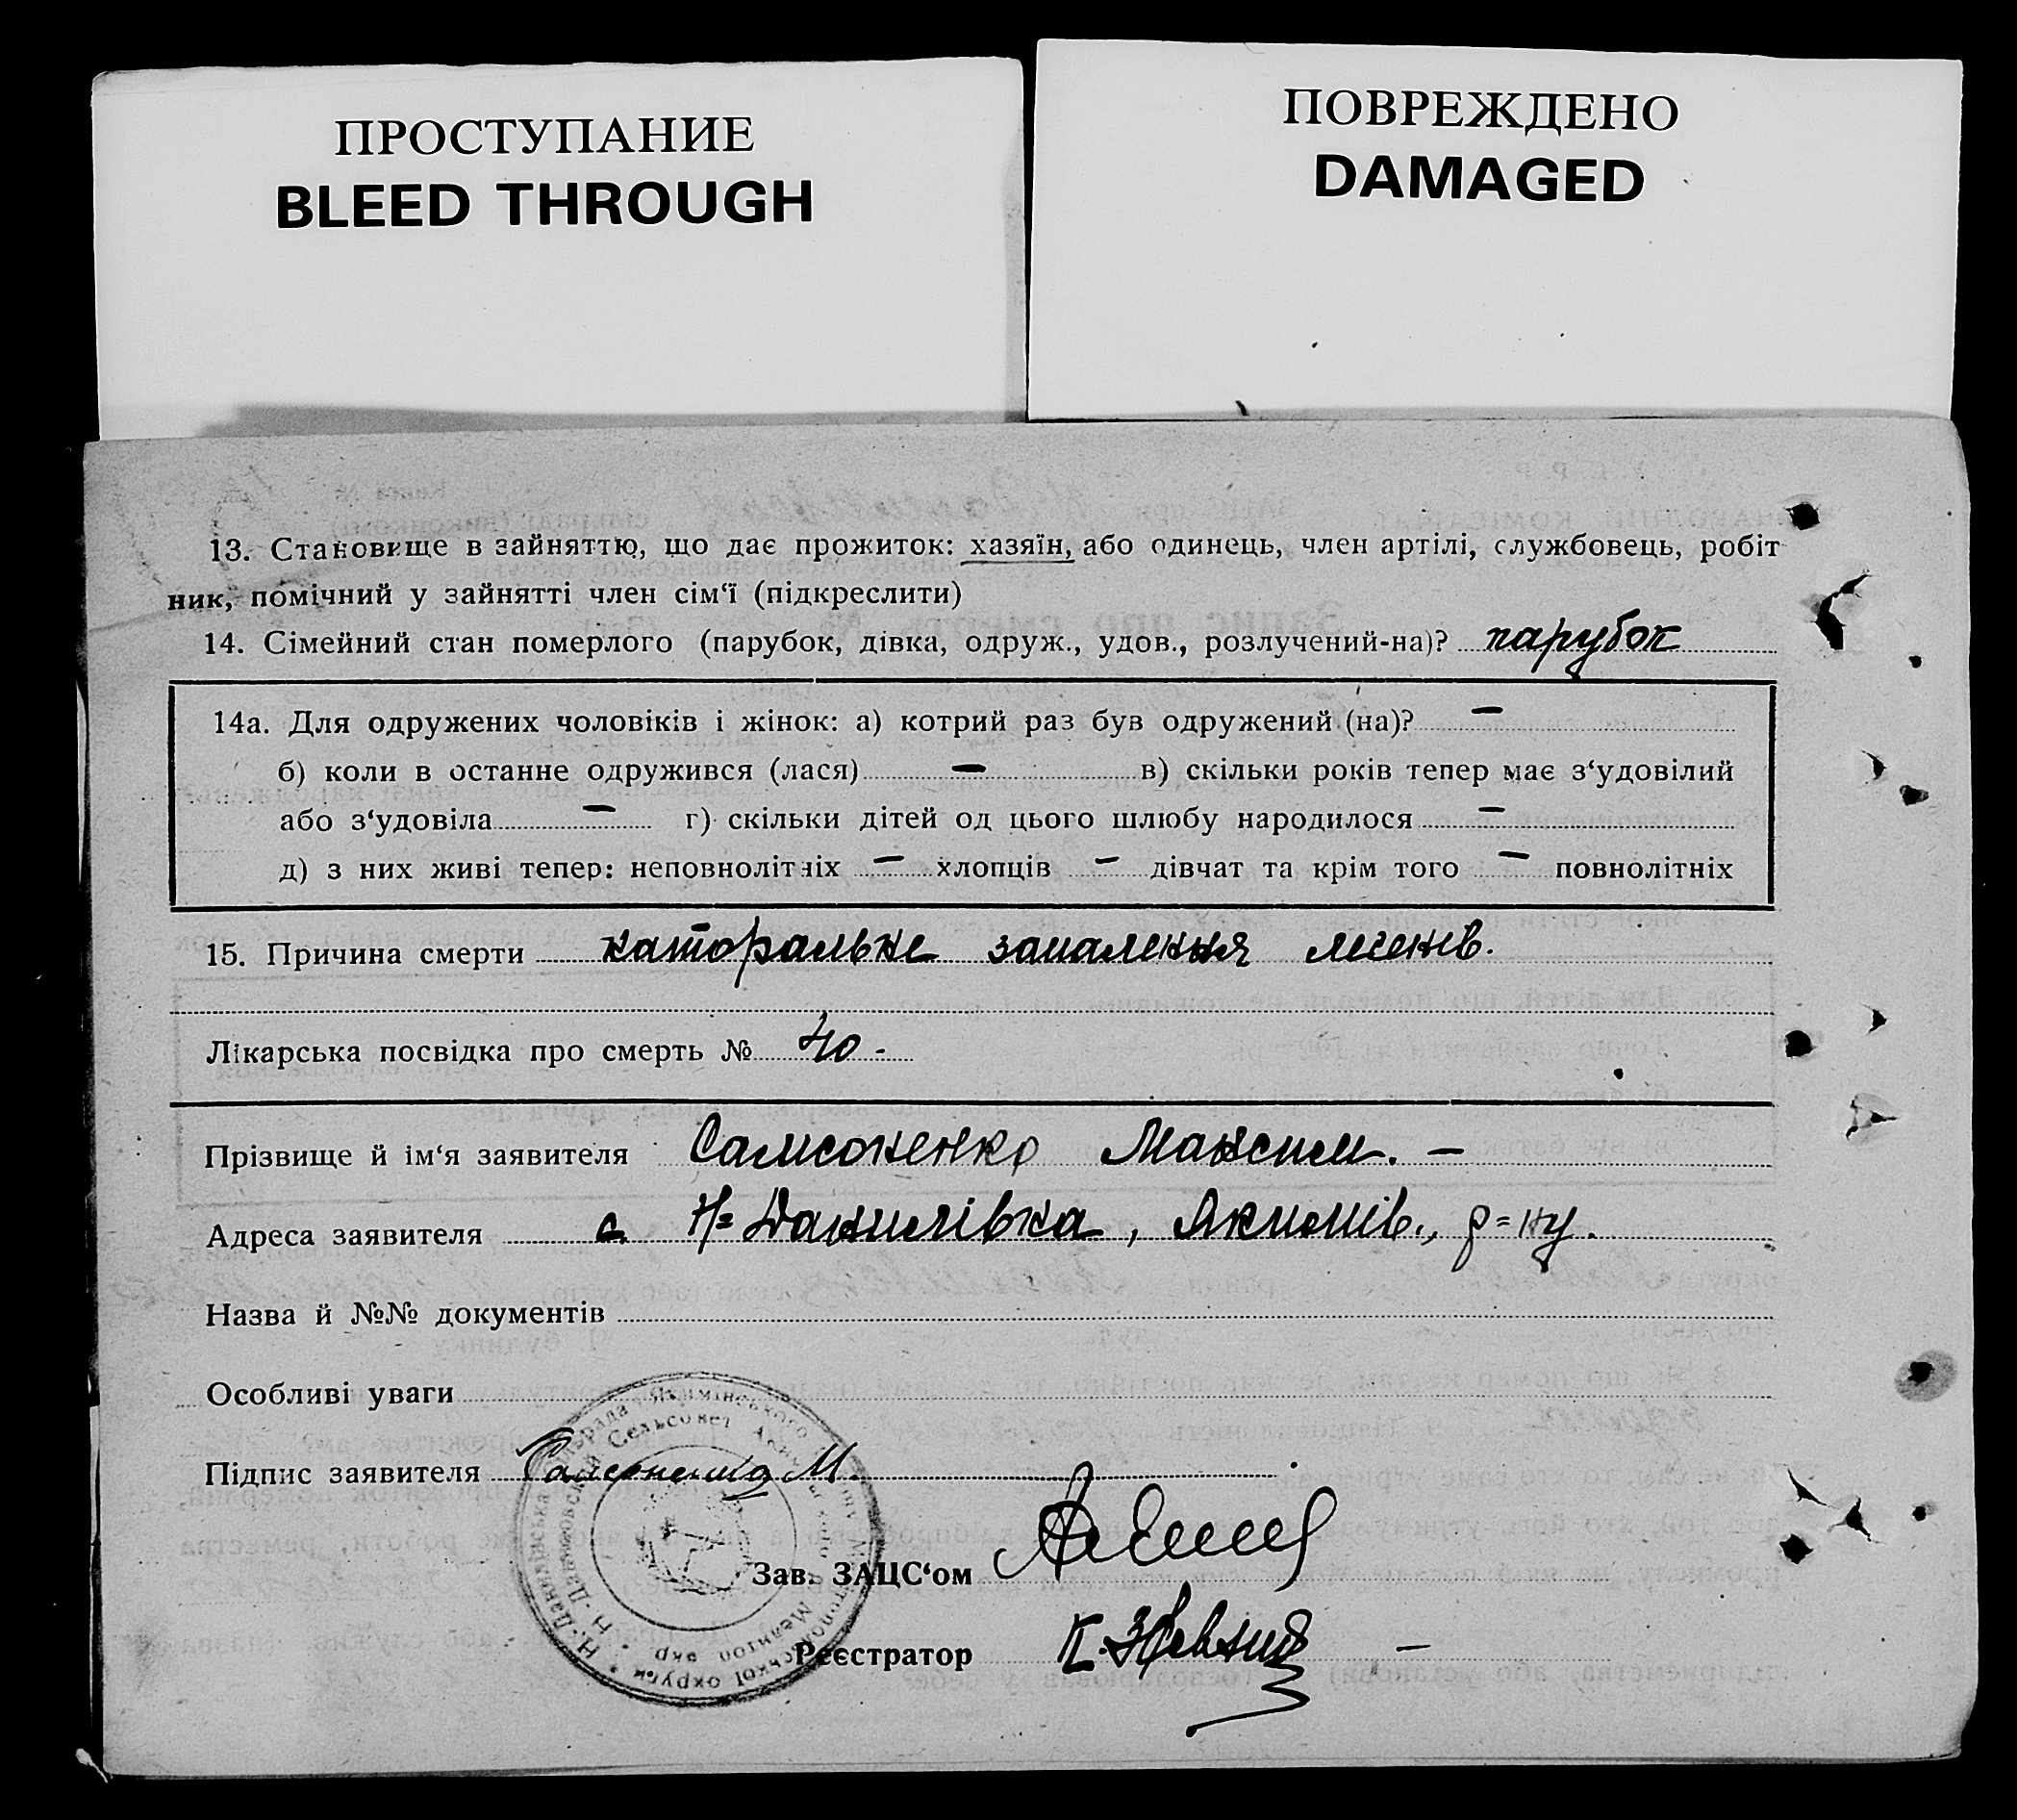 ПРОСТУПАНИЕ
BLEED THROUGH
ПОВРЕЖДЕНО
DAMAGED
13. Становище в зайняттю, що дає прожиток: хазяїн, або одинець, член артілі, службовець, робіт
ник, помічний у зайнятті член сім‘ї (підкреслити)
14. Сімейний стан померлого (парубок, дівка, одруж., удов., розлучений-на)? парубок
14а. Для одружених чоловіків і жінок: а) котрий раз був одружений (на)? —
б) коли в останне одружився (лася) — в) скільки років тепер має з‘удовілий
або з‘удовіла — г) скільки дітей од цього шлюбу народилося —
д) з них живі тепер: неповнолітніх — хлопців — дівчат та крім того — повнолітніх
15. Причина смерти катаральне запалення легенів.
Лікарська посвідка про смерть № 40 -
Прізвище й ім‘я заявителя Самсоненко Максим. —
Адреса заявителя с. Н=Данилівка, Якимів., р=ну.
Назва й №№ документів
Особливі уваги
Підпис заявителя Самсоненко М.
Зав. ЗАЦС‘ом
Реєстратор К.